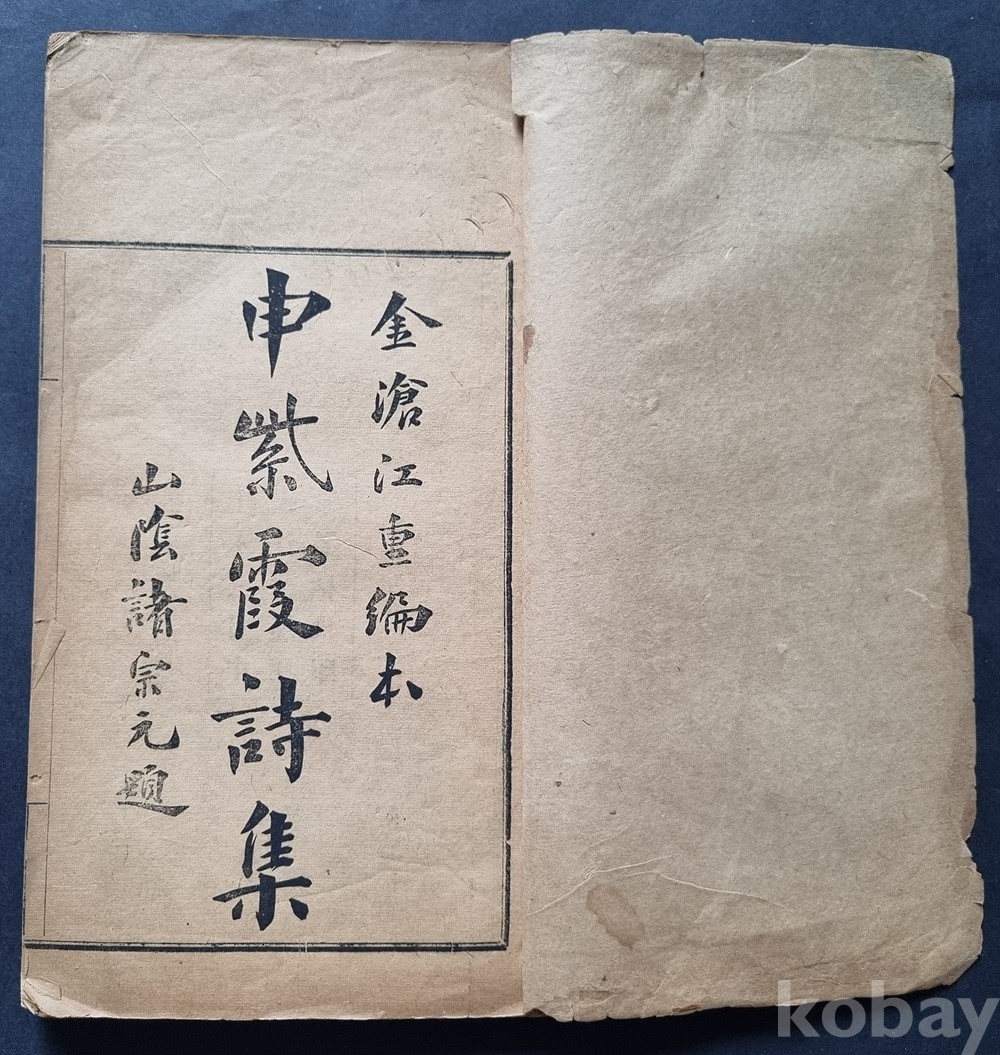 金滄江重編本
申紫霞詩集
山陰諸宗元題
kobay